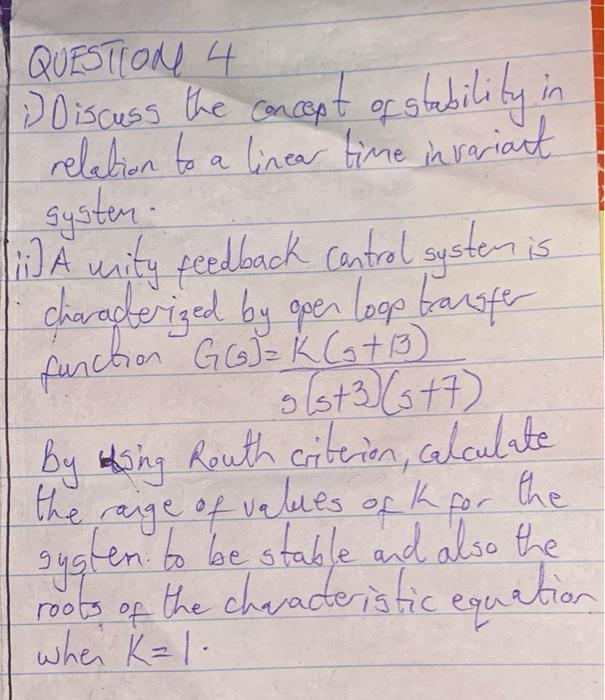 QUESTION 4
i) Discuss the concept of stability in
relation to a linear time invariant
system.
ii] A unity feedback control system is
characterized by open loop transfer
function G(s) = K(s+13)
s(s+3)(s+7)
By using Routh criterion, calculate
the range of values of K for the
system to be stable and also the
roots of the characteristic equation
when K=1.